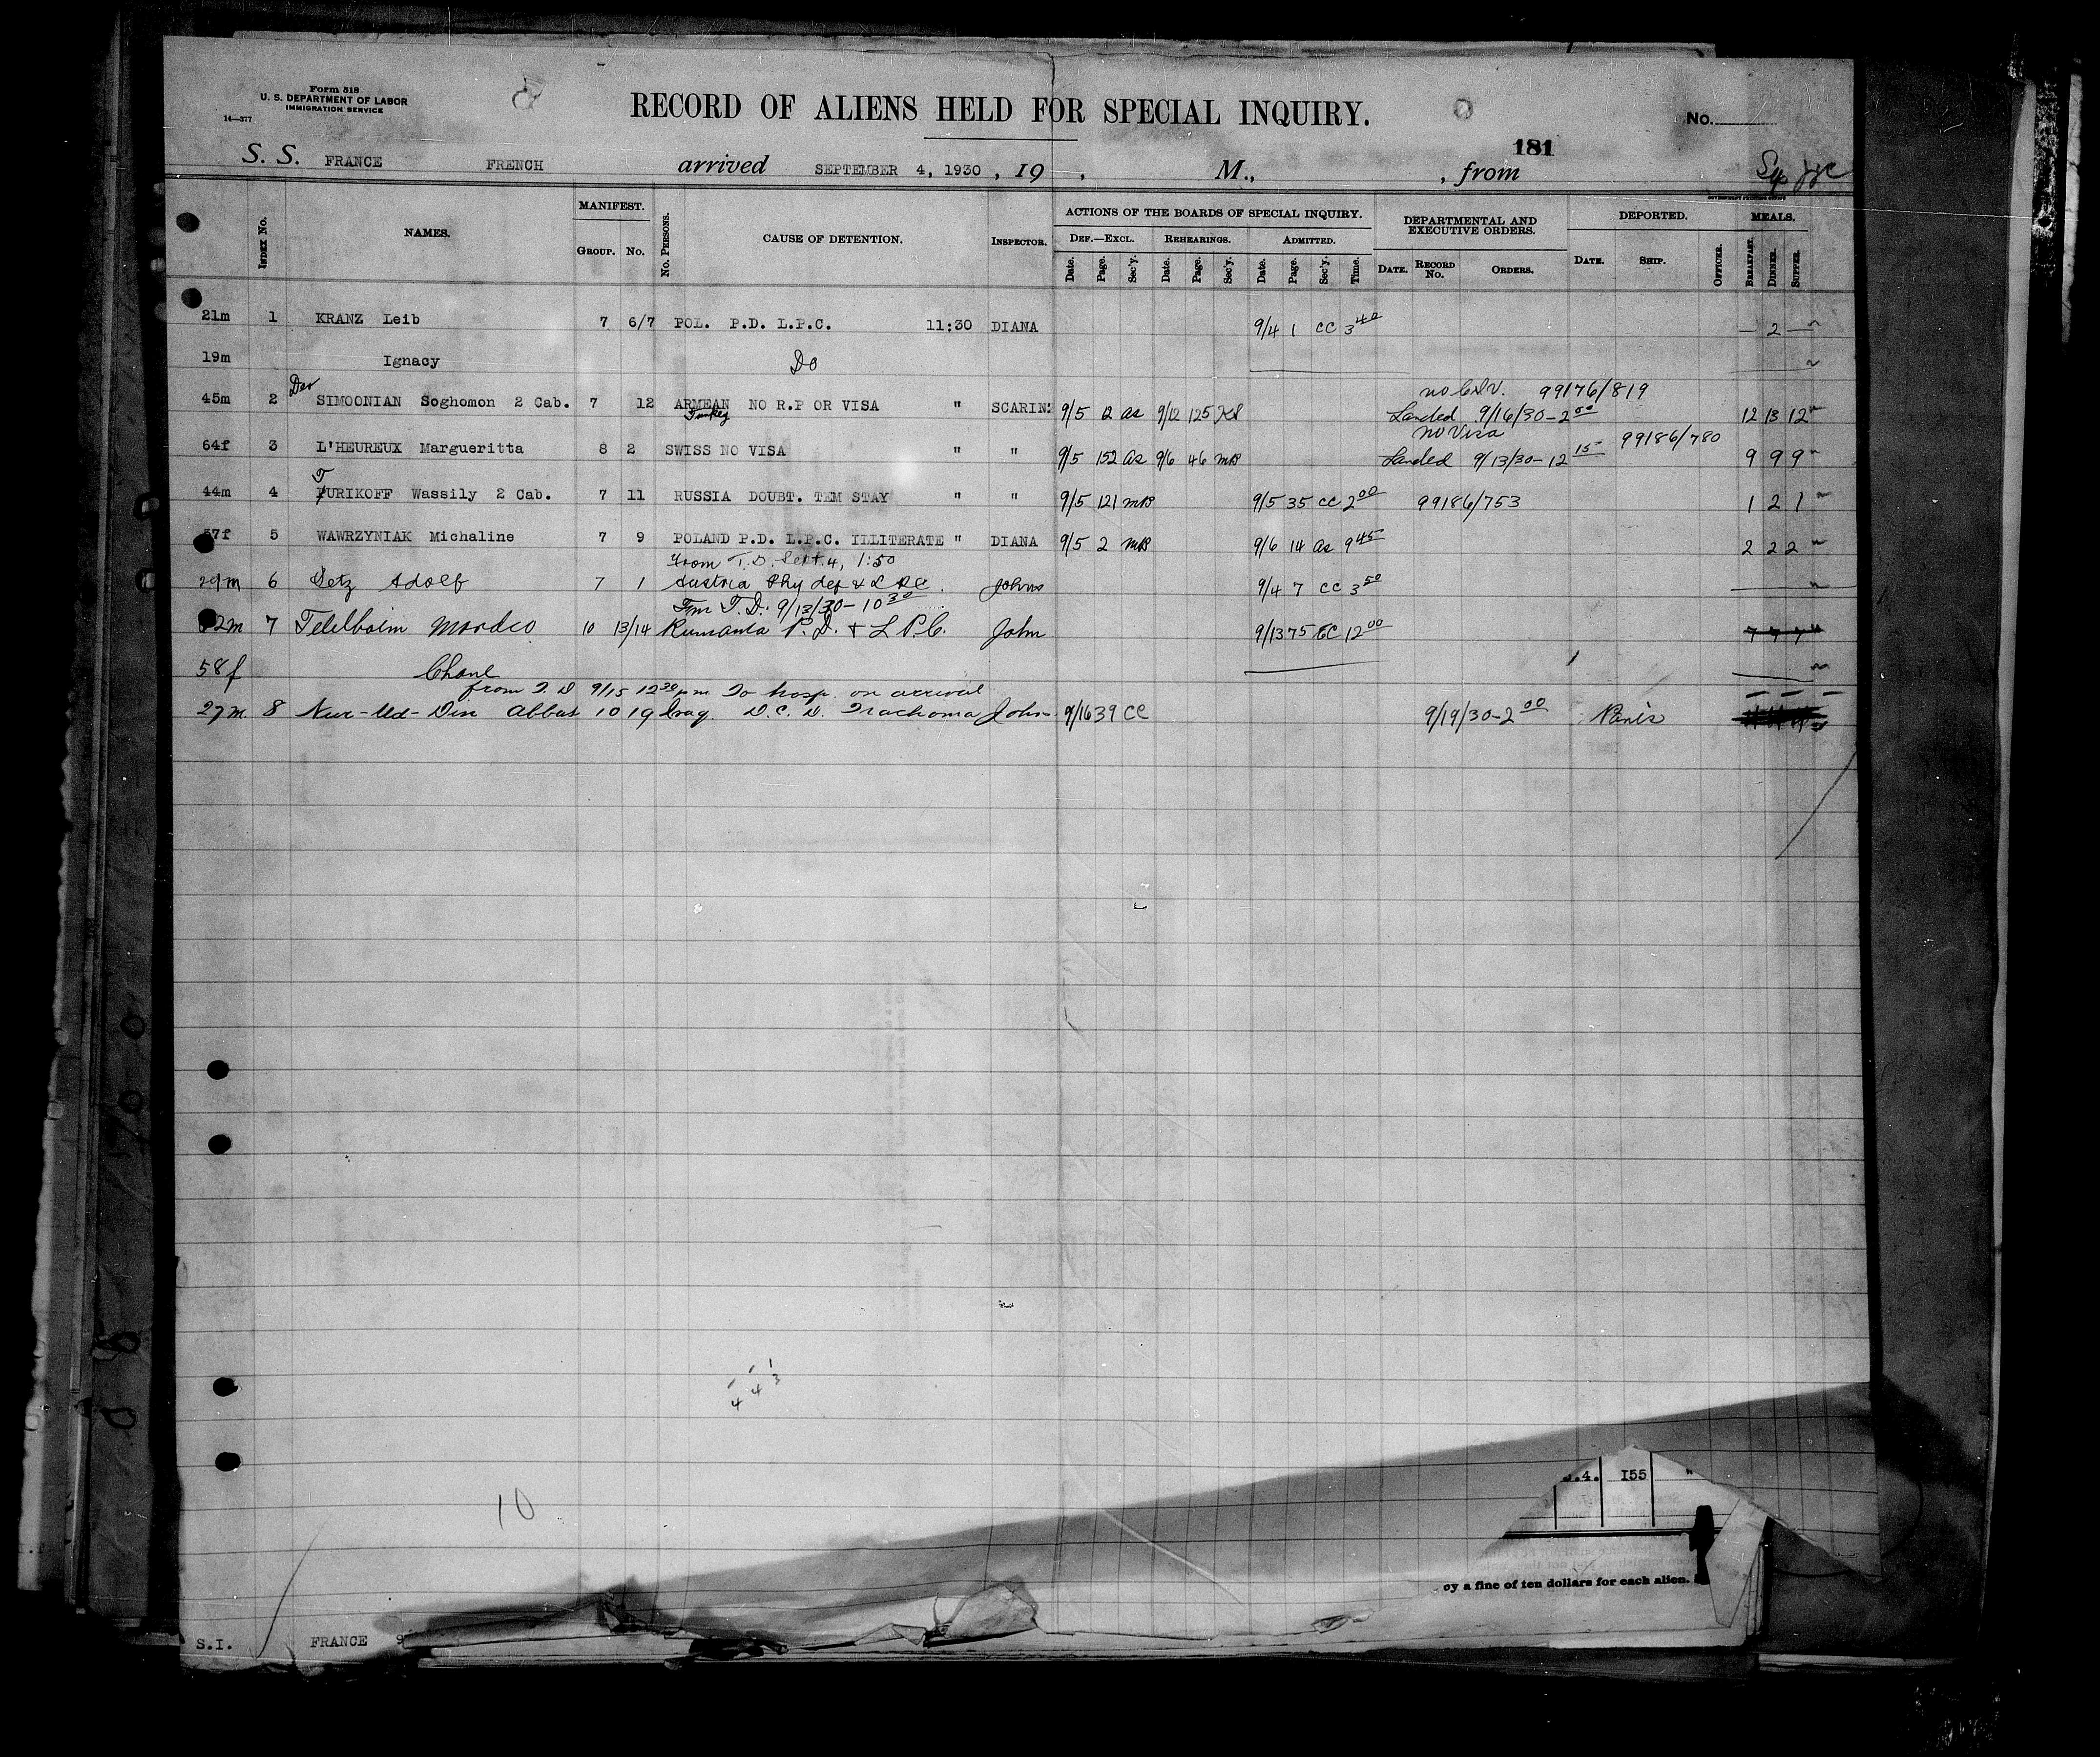 Form 518
U. S. DEPARTMENT OF LABOR
IMMIGRATION SERVICE
14—377
RECORD OF ALIENS HELD FOR SPECIAL INQUIRY.
No.
181
S. S. FRANCE FRENCH arrived SEPTEMBER 4, 1930 , 19 , M., , from
GOVERNMENT PRINTING OFFICE
INDEX No. NAMES. MANIFEST. GROUP. No. No. PERSONS. CAUSE OF DETENTION. INSPECTOR. ACTIONS OF THE BOARDS OF SPECIAL INQUIRY. DEF.—EXCL. REHEARINGS. ADMITTED. DEPARTMENTAL AND EXECUTIVE ORDERS. DEPORTED. MEALS.
Date. Page. Sec'y. Date. Page. Sec'y. Date. Page. Sec'y. Time. DATE. RECORD No. ORDERS. DATE. SHIP. OFFICER. BREAKFAST. DINNER. SUPPER.
21m 1 KRANZ Leib 7 6/7 POL. P.D. L.P.C. 11:30 DIANA 9/4 1 CC 3 40 — 2 —
19m Ignacy Do
no C.I.V. 99176/819
45m 2 SIMOONIAN Soghomon 2 Cab. 7 12 ARMEAN NO R.P OR VISA " SCARIN 9/5 12 as 9/12 125 Landed 9/16/30-2 00 12 13 12
Turkey
no Visa 99186/780
64f 3 L'HEUREUX Margueritta 8 2 SWISS NO VISA " " 9/5 152 as 9/6 46 Landed 9/13/30-12 15 9 9 9
T
44m 4 FURIKOFF Wassily 2 Cab. 7 11 RUSSIA DOUBT. TEM STAY " " 9/5 121 9/5 35 CC 2 00 99186/753 1 2 1
57f 5 WAWRZYNIAK Michaline 7 9 POLAND P.D. L.P.C. ILLITERATE " DIANA 9/5 2 9/6 14 as 9 45 2 2 2
From T.D. Sept. 4, 1:50
29m 6 Adolf 7 1 Austria Phy def & L P C. Johns 9/4 7 CC 3 50
Fm T.D. 9/13/30-10 30
7 Mordco 10 13/14 Rumania P.D. & L P C. John 9/13 75 12 00 7 7 7
58f
from T. D 9/15 12 30 pm To hosp. on arrival
27m 8 Nur-Ud-Din Abbas 10 19 Iraq. D. C. D. Trachoma John 9/16 39 CC 9/19/30-2 00 Paris
4 4 3
10
.4. 155
by a fine of ten dollars for each alien.
S.I. FRANCE